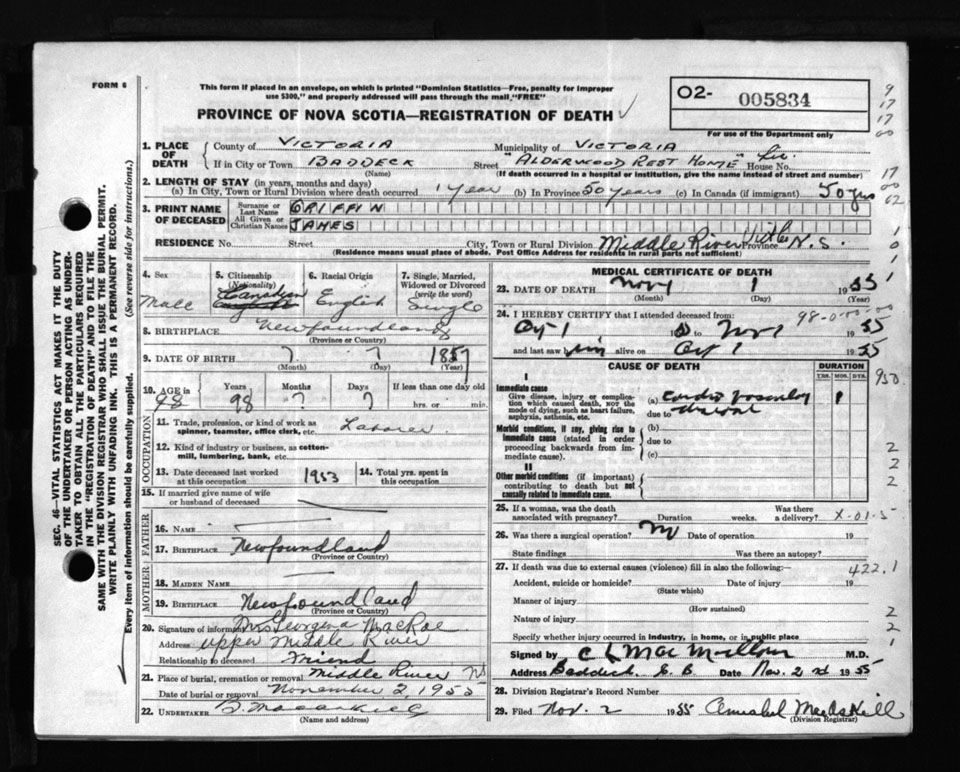 FORM 6
This form if placed in an envelope, on which is printed "Dominion Statistics—Free, penalty for improper
use $300," and properly addressed will pass through the mail "FREE"
PROVINCE OF NOVA SCOTIA—REGISTRATION OF DEATH
O2- 005834
For use of the Department only
SEC. 46—VITAL STATISTICS ACT MAKES IT THE DUTY
OF THE UNDERTAKER OR PERSON ACTING AS UNDER-
TAKER TO OBTAIN ALL THE PARTICULARS REQUIRED
IN THE "REGISTRATION OF DEATH" AND TO FILE THE
SAME WITH THE DIVISION REGISTRAR WHO SHALL ISSUE THE BURIAL PERMIT.
WRITE PLAINLY WITH UNFADING INK. THIS IS A PERMANENT RECORD.
(See reverse side for instructions.)
Every item of information should be carefully supplied.
1. PLACE OF DEATH
County of VICTORIA Municipality of VICTORIA
If in City or Town BADDECK Street "ALDERWOOD REST HOME" House No.
(Name) (If death occurred in a hospital or institution, give the name instead of street and number)
2. LENGTH OF STAY (in years, months and days)
(a) In City, Town or Rural Division where death occurred 1 year (b) In Province 50 years (c) In Canada (if immigrant) 50 yrs
3. PRINT NAME OF DECEASED
Surname or Last Name GRIFFIN
All Given or Christian Names JAMES
RESIDENCE No. Street City, Town or Rural Division Middle River Province N.S.
(Residence means usual place of abode. Post Office Address for residents in rural parts not sufficient)
4. Sex Male
5. Citizenship (Nationality) Canadian
6. Racial Origin English
7. Single, Married, Widowed or Divorced (write the word) Single
8. BIRTHPLACE Newfoundland
(Province or Country)
9. DATE OF BIRTH ? ? 1857
(Month) (Day) (Year)
10. AGE in 98 Years 98 Months ? Days ? If less than one day old
hrs. or min.
OCCUPATION
11. Trade, profession, or kind of work as
spinner, teamster, office clerk, etc. Laborer
12. Kind of industry or business, as cotten-
mill, lumbering, bank, etc.
13. Date deceased last worked
at this occupation 1953
14. Total yrs. spent in
this occupation
15. If married give name of wife
or husband of deceased
FATHER
16. NAME
17. BIRTHPLACE Newfoundland
(Province or Country)
MOTHER
18. MAIDEN NAME
19. BIRTHPLACE Newfoundland
(Province or Country)
20. Signature of informant Mrs Georgena MacRae
Address Upper Middle River
Relationship to deceased Friend
21. Place of burial, cremation or removal Middle River NS
Date of burial or removal November 2, 1955
22. UNDERTAKER
(Name and address)
MEDICAL CERTIFICATE OF DEATH
23. DATE OF DEATH Nov 1 1955
(Month) (Day) (Year)
24. I HEREBY CERTIFY that I attended deceased from:
to Nov 1 1955
and last saw him alive on 1 1955
CAUSE OF DEATH
DURATION
YRS. MOS. DYS.
I
Immediate cause
Give disease, injury or compli-
cation which caused death, nor the
mode of dying, such as heart failure,
asphyxia, asthenia, etc.
(a)
due to
Morbid conditions, if any, giving rise to
immediate cause (stated in order
proceeding backwards from im-
mediate cause).
(b)
due to
(c)
II
Other morbid conditions (if important)
contributing to death but not
causally related to immediate cause.
25. If a woman, was the death
associated with pregnancy? Duration weeks. Was there
a delivery? X-01-5
26. Was there a surgical operation? No Date of operation 19
State findings Was there an autopsy?
27. If death was due to external causes (violence) fill in also the following:—
422.1
Accident, suicide or homicide? Date of injury 19
(State which)
Manner of injury
(How sustained)
Nature of injury
Specify whether injury occurred in industry, in home, or in public place
Signed by C L MacMillan M.D.
Address Baddeck, C. B. Date Nov. 2nd 1955
28. Division Registrar's Record Number
29. Filed Nov. 2 1955 Annabel MacAskill
(Division Registrar)